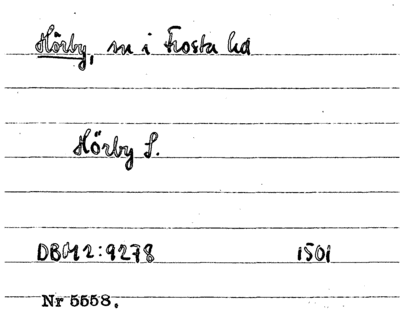 Hörby, sn i Frosta hd
Hörby S.
DBM 2:9278 1501
Nr 5558.